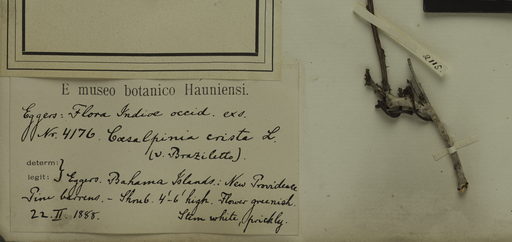 E museo botanico Hauniensi.
Eggers: Flora Indiæ occid. exs.
Nr. 4176. Cæsalpinia crista L.
(v. Braziletto).
determ:
legit: Eggers. Bahama Islands: New Providence
Pine barrens. - Shrub. 4'-6' high. Flower greenish.
22 II. 1888. Stem white, prickly.